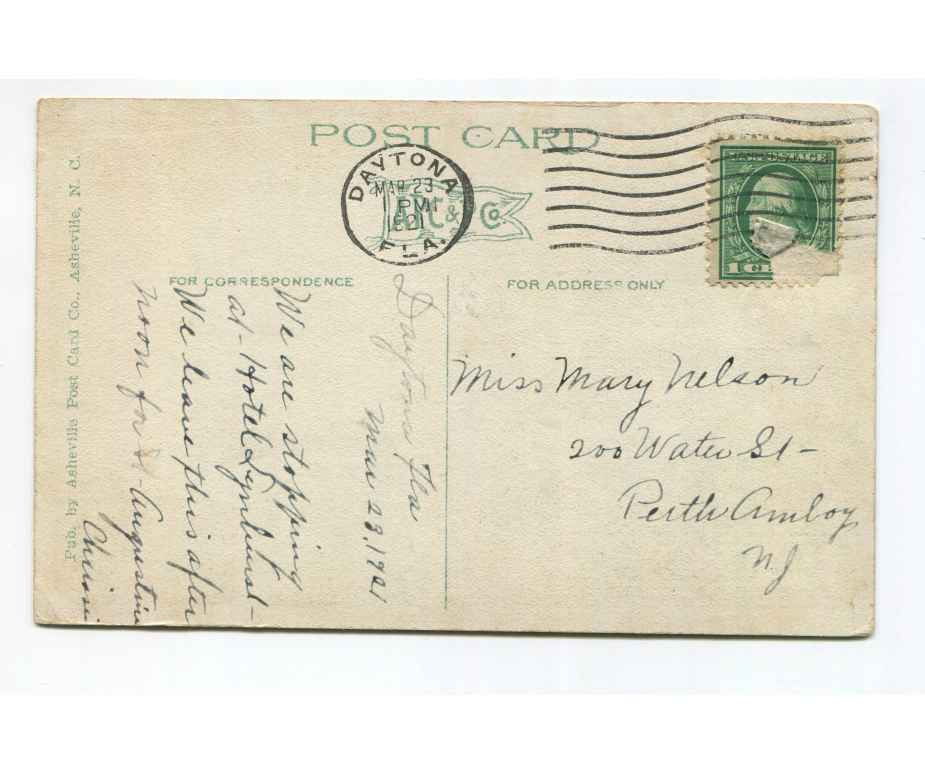 POST CARD
DAYTONA
MAR 23
PM
1921
FLA.
A.C. & Co.
UNITED STATES
1 C
FOR CORRESPONDENCE
FOR ADDRESS ONLY
Pub. by Asheville Post Card Co., Asheville, N. C.
Daytona Fla
Mar 23, 1921
We are stopping
at - Hotel Lyndhurst -
We leave this after
noon for St - Augustine
Miss Mary Nelson
200 Water St -
Perth Amboy
N.J